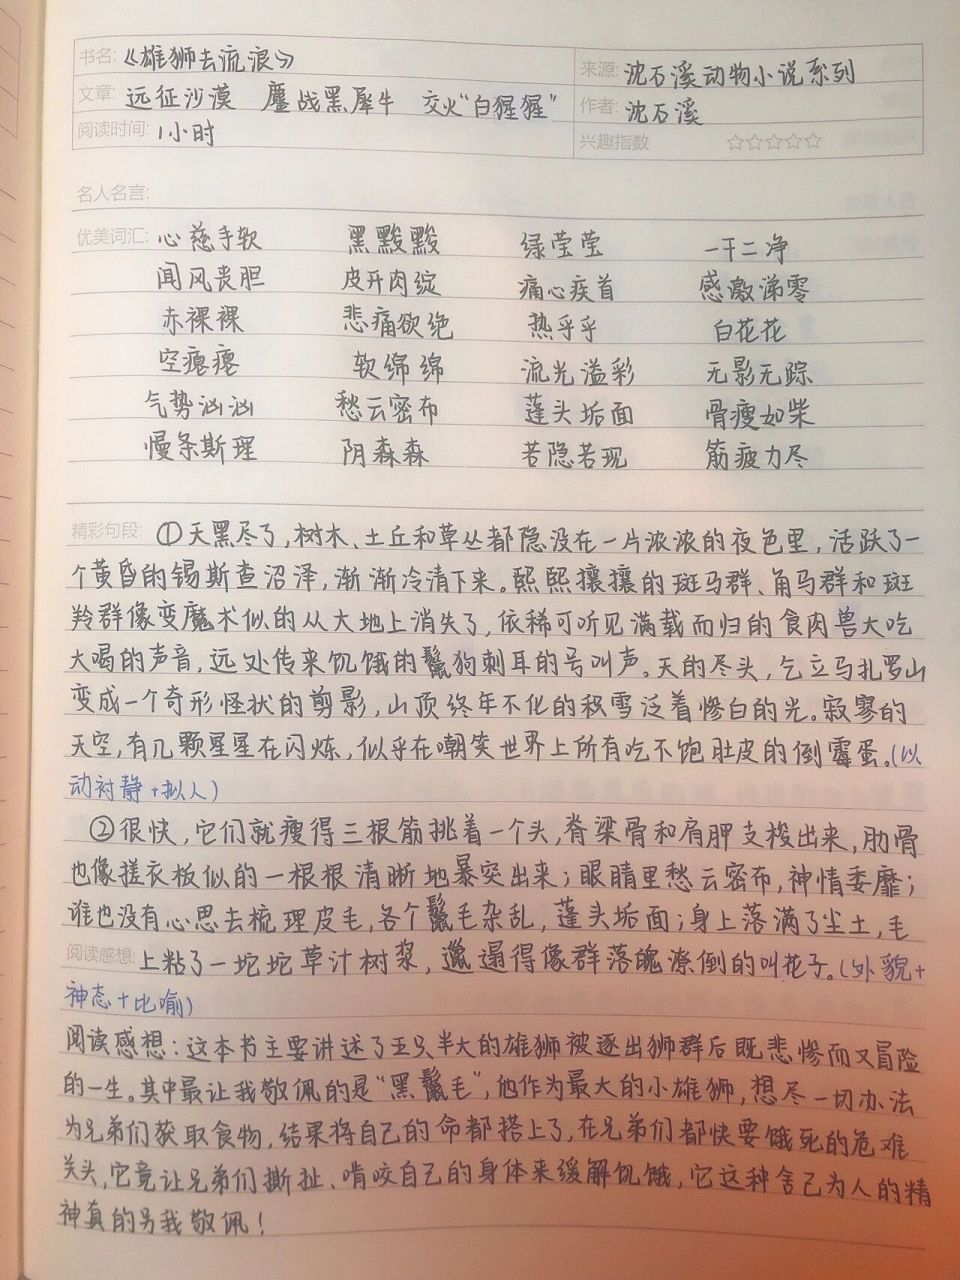 书名:《雄狮去流浪》 来源:沈石溪动物小说系列
文章:远征沙漠 鏖战黑犀牛 交火“白猩猩” 作者:沈石溪
阅读时间:1小时 兴趣指数 ☆☆☆☆☆
名人名言:
优美词汇:心慈手软 黑黢黢 绿莹莹 一干二净
闻风丧胆 皮开肉绽 痛心疾首 感激涕零
赤裸裸 悲痛欲绝 热乎乎 白花花
空瘪瘪 软绵绵 流光溢彩 无影无踪
气势汹汹 愁云密布 蓬头垢面 骨瘦如柴
慢条斯理 阴森森 若隐若现 筋疲力尽
精彩句段: ①天黑尽了,树木、土丘和草丛都隐没在一片浓浓的夜色里,活跃了一
个黄昏的锡斯查沼泽,渐渐冷清下来。熙熙攘攘的斑马群、角马群和斑
羚群像变魔术似的从大地上消失了,依稀可听见满载而归的食肉兽大吃
大喝的声音,远处传来饥饿的鬣狗刺耳的号叫声。天的尽头,乞立马扎罗山
变成一个奇形怪状的剪影,山顶终年不化的积雪泛着惨白的光。寂寥的
天空,有几颗星星在闪烁,似乎在嘲笑世界上所有吃不饱肚皮的倒霉蛋。(以
动衬静+拟人)
②很快,它们就瘦得三根筋挑着一个头,脊梁骨和肩胛支棱出来,肋骨
也像搓衣板似的一根根清晰地暴突出来;眼睛里愁云密布,神情委靡;
谁也没有心思去梳理皮毛,各个鬣毛杂乱,蓬头垢面;身上落满了尘土,毛
阅读感想:上粘了一坨坨草汁树浆,邋遢得像群落魄潦倒的叫花子。(外貌+
神态+比喻)
阅读感想:这本书主要讲述了五只半大的雄狮被逐出狮群后既悲惨而又冒险
的一生。其中最让我敬佩的是“黑鬣毛”,他作为最大的小雄狮,想尽一切办法
为兄弟们获取食物,结果将自己的命都搭上了,在兄弟们都快要饿死的危难
关头,它竟让兄弟们撕扯、啃咬自己的身体来缓解饥饿,它这种舍己为人的精
神真的另我敬佩!